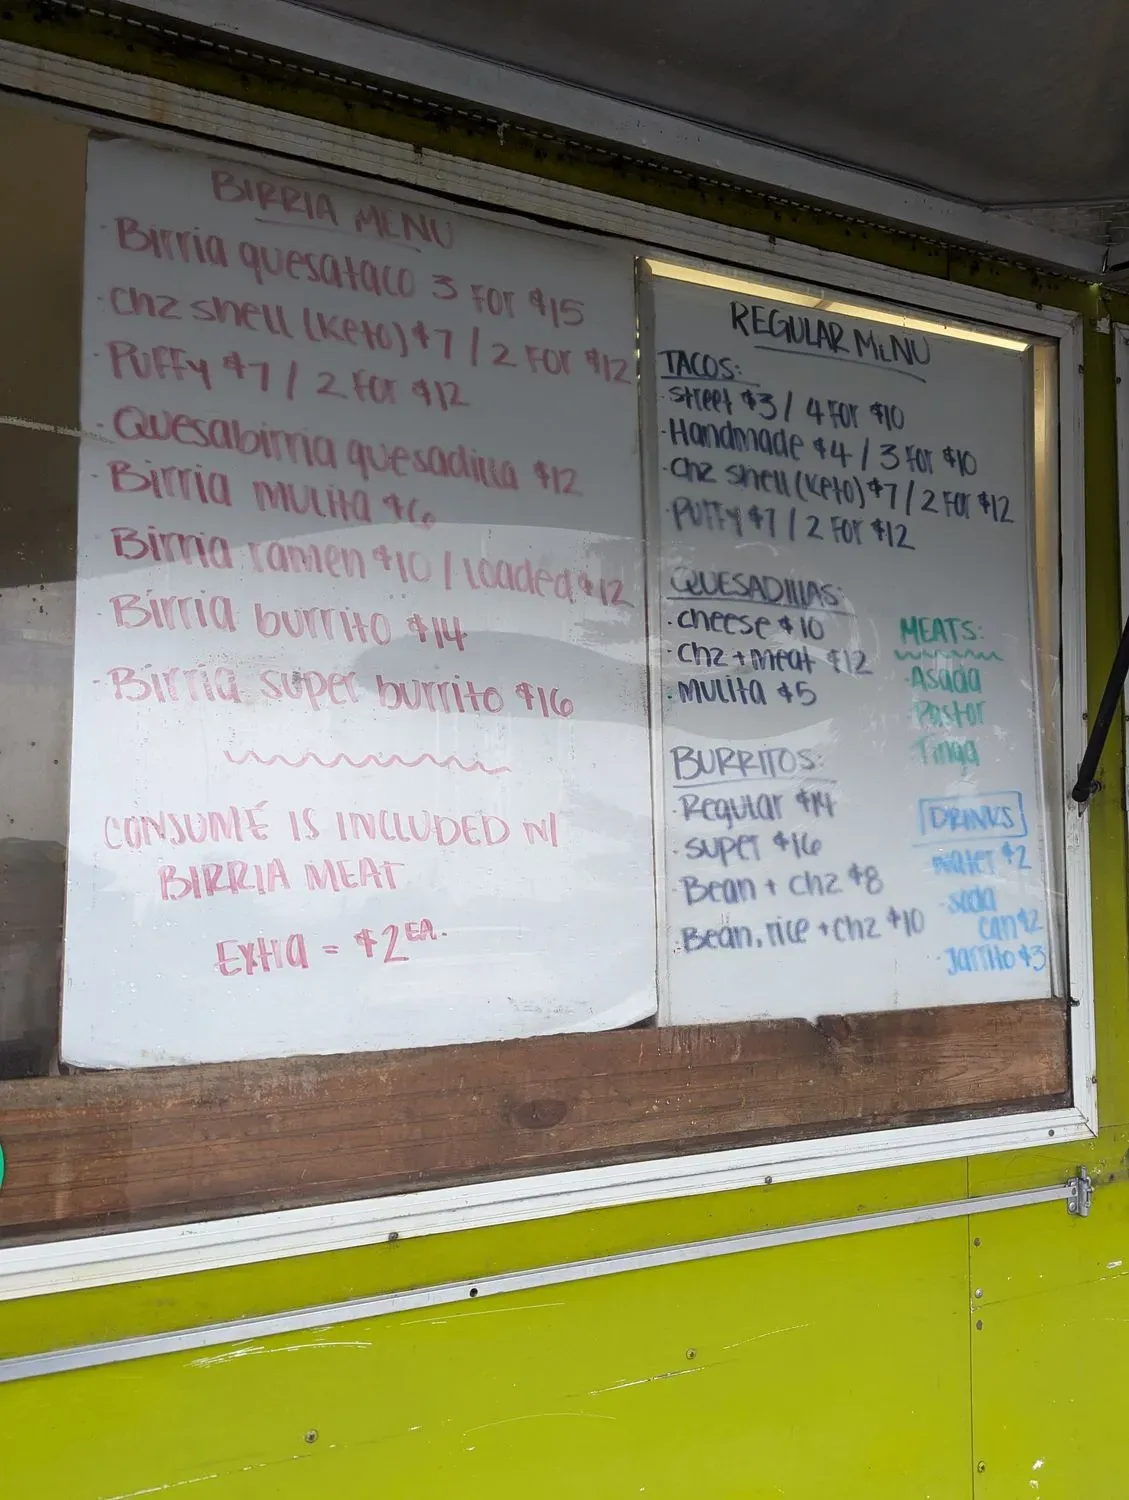 BIRRIA MENU
· Birria quesataco 3 FOR $15
· chz shell (keto) $7 / 2 FOR $12
· PUFFY $7 / 2 FOR $12
· Quesabirria quesadilla $12
· Birria mulita $6
· Birria ramen $10 / loaded $12
· Birria burrito $14
· Birria super burrito $16
CONSUMÉ IS INCLUDED W/
BIRRIA MEAT
Extra = $2 EA.
REGULAR MENU
TACOS:
· street $3 / 4 FOR $10
· Handmade $4 / 3 FOR $10
· chz shell (keto) $7 / 2 FOR $12
· PUFFY $7 / 2 FOR $12
QUESADIllAS:
· cheese $10
· chz + meat $12
· mulita $5
BURRITOS:
· Regular $14
· super $16
· Bean + chz $8
· Bean, rice + chz $10
MEATS:
· Asada
Pastor
Tinga
DRINKS
water $2
· soda
can $2
· Jarrito $3